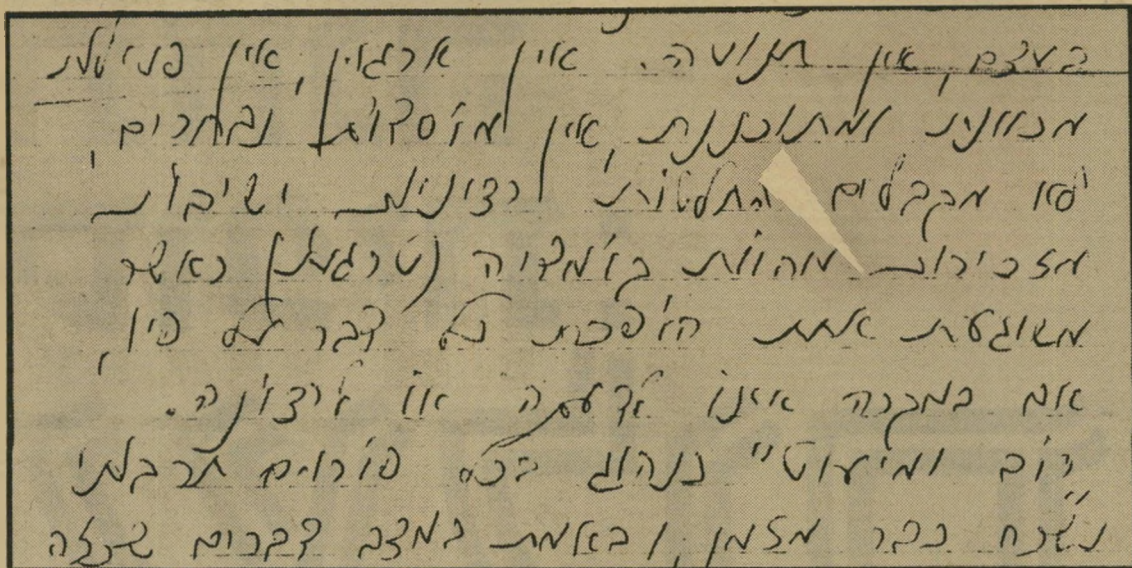 בעצם, אין תנועה. אין ארגון, אין פעילות
מכוונת ומתוכננת, אין מוסדות נבחרים,
לא מקבלים החלטות רציניות. ישיבות
מזכירות מהוות קומדיה (טרגית) כאשר
משוגעת אחת הופכת כל דבר על פיו,
אם במקרה אינו לדעתה או לרצונה.
רוב ומיעוט" כנהוג בכל פורום תרבותי
נשכח כבר מזמן, ובאמת במצב דברים שכזה